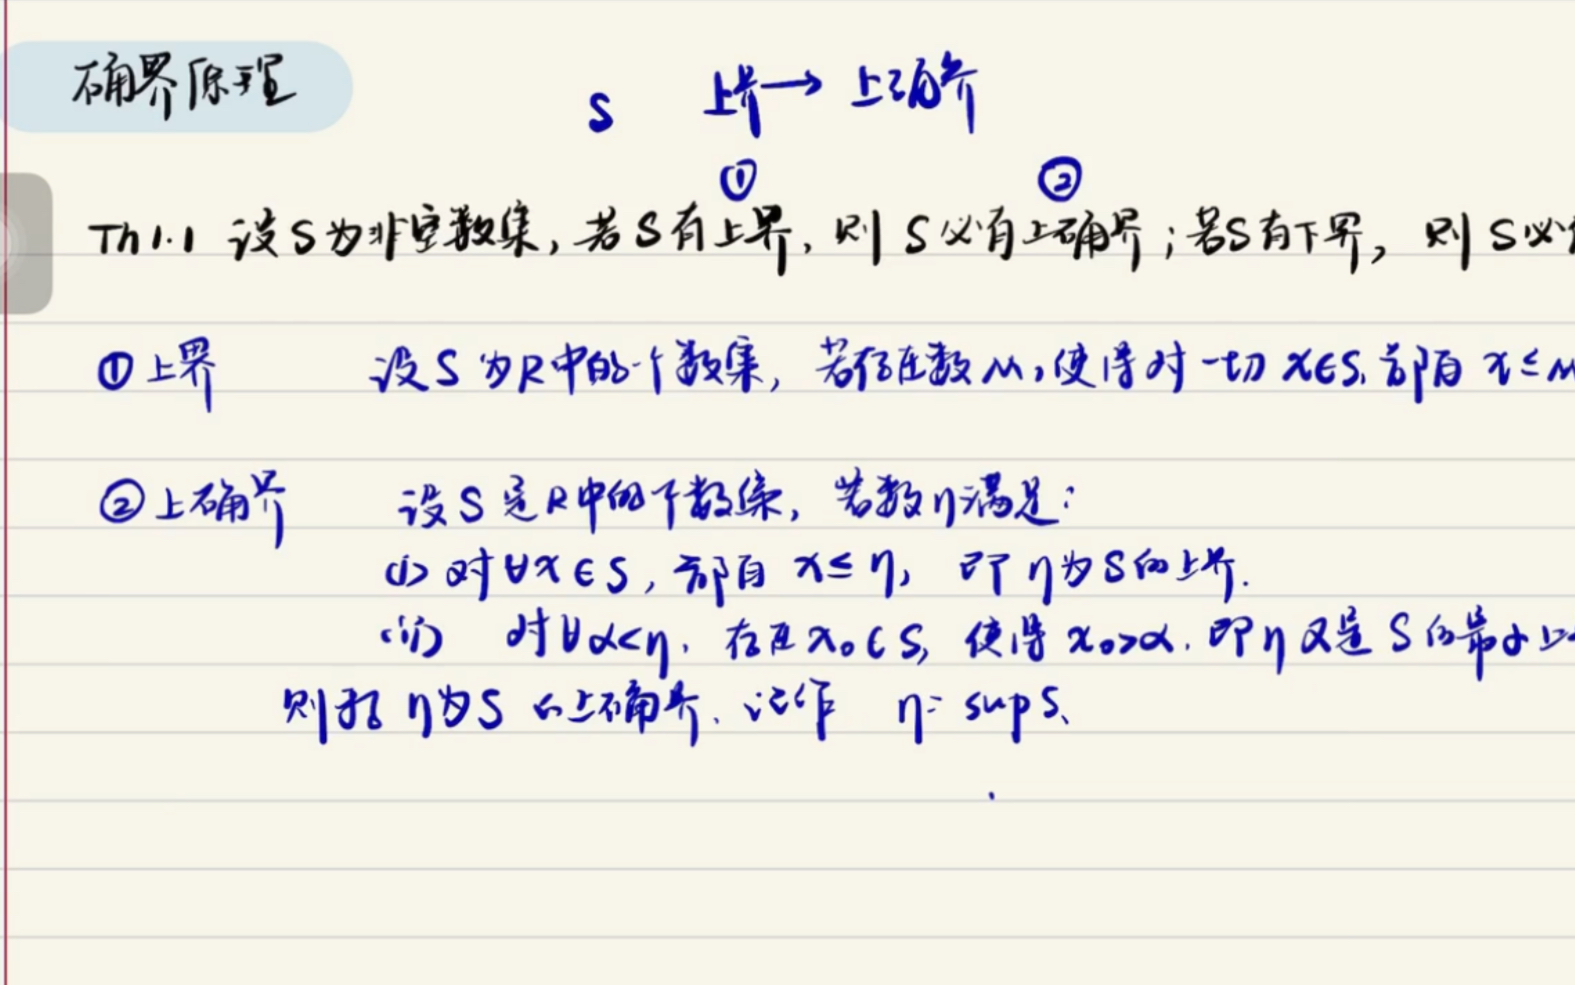 确界原理
S 上界→上确界
① ②
Th1.1 设S为非空数集,若S有上界,则S必有上确界;若S有下界,则S必
①上界 设S为R中的一个数集,若存在数M,使得对一切x∈S,都有x≤M
②上确界 设S是R中的一个数集,若数η满足:
(i) 对∀x∈S,都有x≤η,即η为S的上界.
(ii) 对∀α<η,存在x₀∈S,使得x₀>α.即η又是S的最小上
则称η为S的上确界.记作 η=sup S、